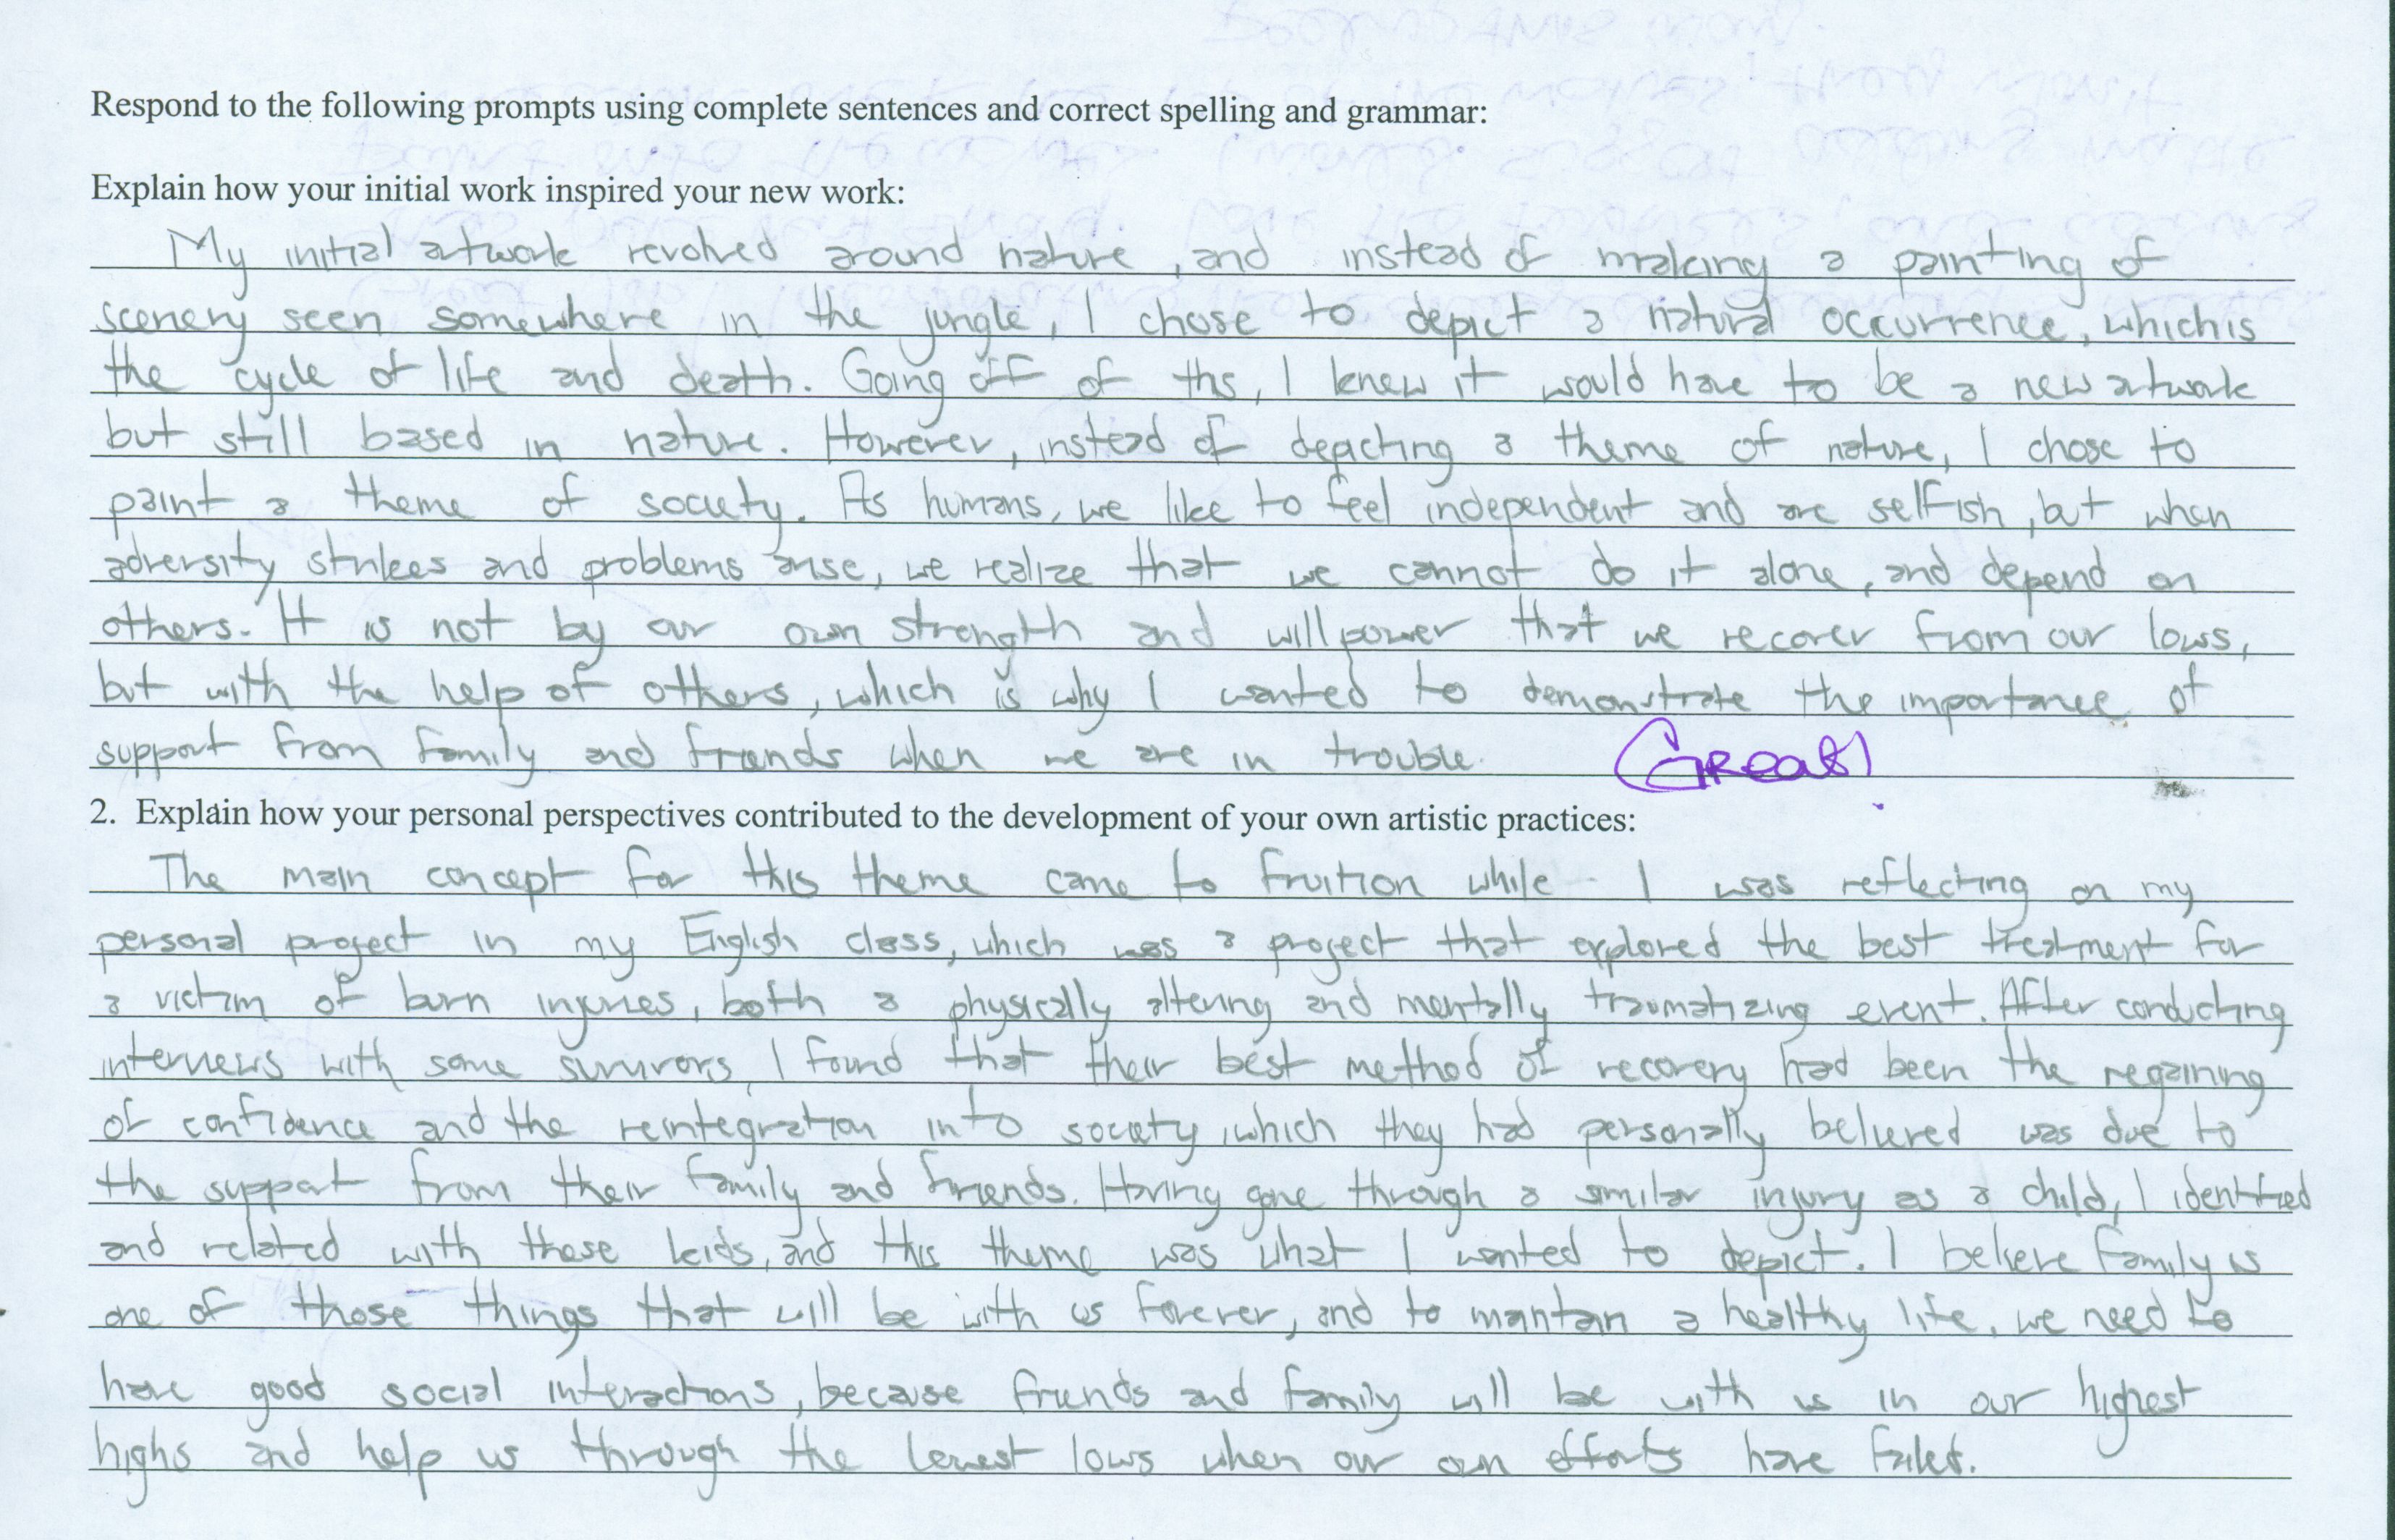 Respond to the following prompts using complete sentences and correct spelling and grammar:
Explain how your initial work inspired your new work:
My initial artwork revolved around nature, and instead of making a painting of
scenery seen somewhere in the jungle, I chose to depict a natural occurrence, which is
the cycle of life and death. Going off of this, I knew it would have to be a new artwork
but still based in nature. However, instead of depicting a theme of nature, I chose to
paint a theme of society. As humans, we like to feel independent and are selfish, but when
adversity strikes and problems arise, we realize that we cannot do it alone, and depend on
others. It is not by our own strength and willpower that we recover from our lows,
but with the help of others, which is why I wanted to demonstrate the importance of
support from family and friends when we are in trouble. Great!
2. Explain how your personal perspectives contributed to the development of your own artistic practices:
The main concept for this theme came to fruition while I was reflecting on my
personal project in my English class, which was a project that explored the best treatment for
a victim of burn injuries, both a physically altering and mentally traumatizing event. After conducting
interviews with some survivors, I found that their best method of recovery had been the regaining
of confidence and the reintegration into society, which they had personally believed was due to
the support from their family and friends. Having gone through a similar injury as a child, I identified
and related with these kids, and this theme was what I wanted to depict. I believe family is
one of those things that will be with us forever, and to maintain a healthy life, we need to
have good social interactions, because friends and family will be with us in our highest
highs and help us through the lowest lows when our own efforts have failed.